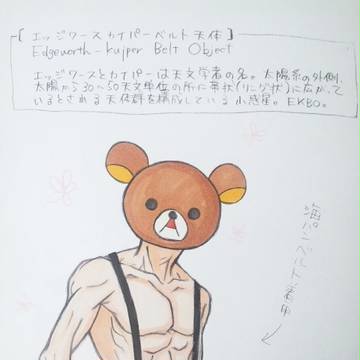 [エッジワース カイパーベルト 天体]
Edgeworth-Kuiper Belt Object
エッジワースとカイパーは天文学者の名。太陽系の外側、
太陽から30〜50天文単位の所に帯状(リング状)に広がって
いるとされる天体群を構成している小惑星。EKBO。
海パンベルト着用